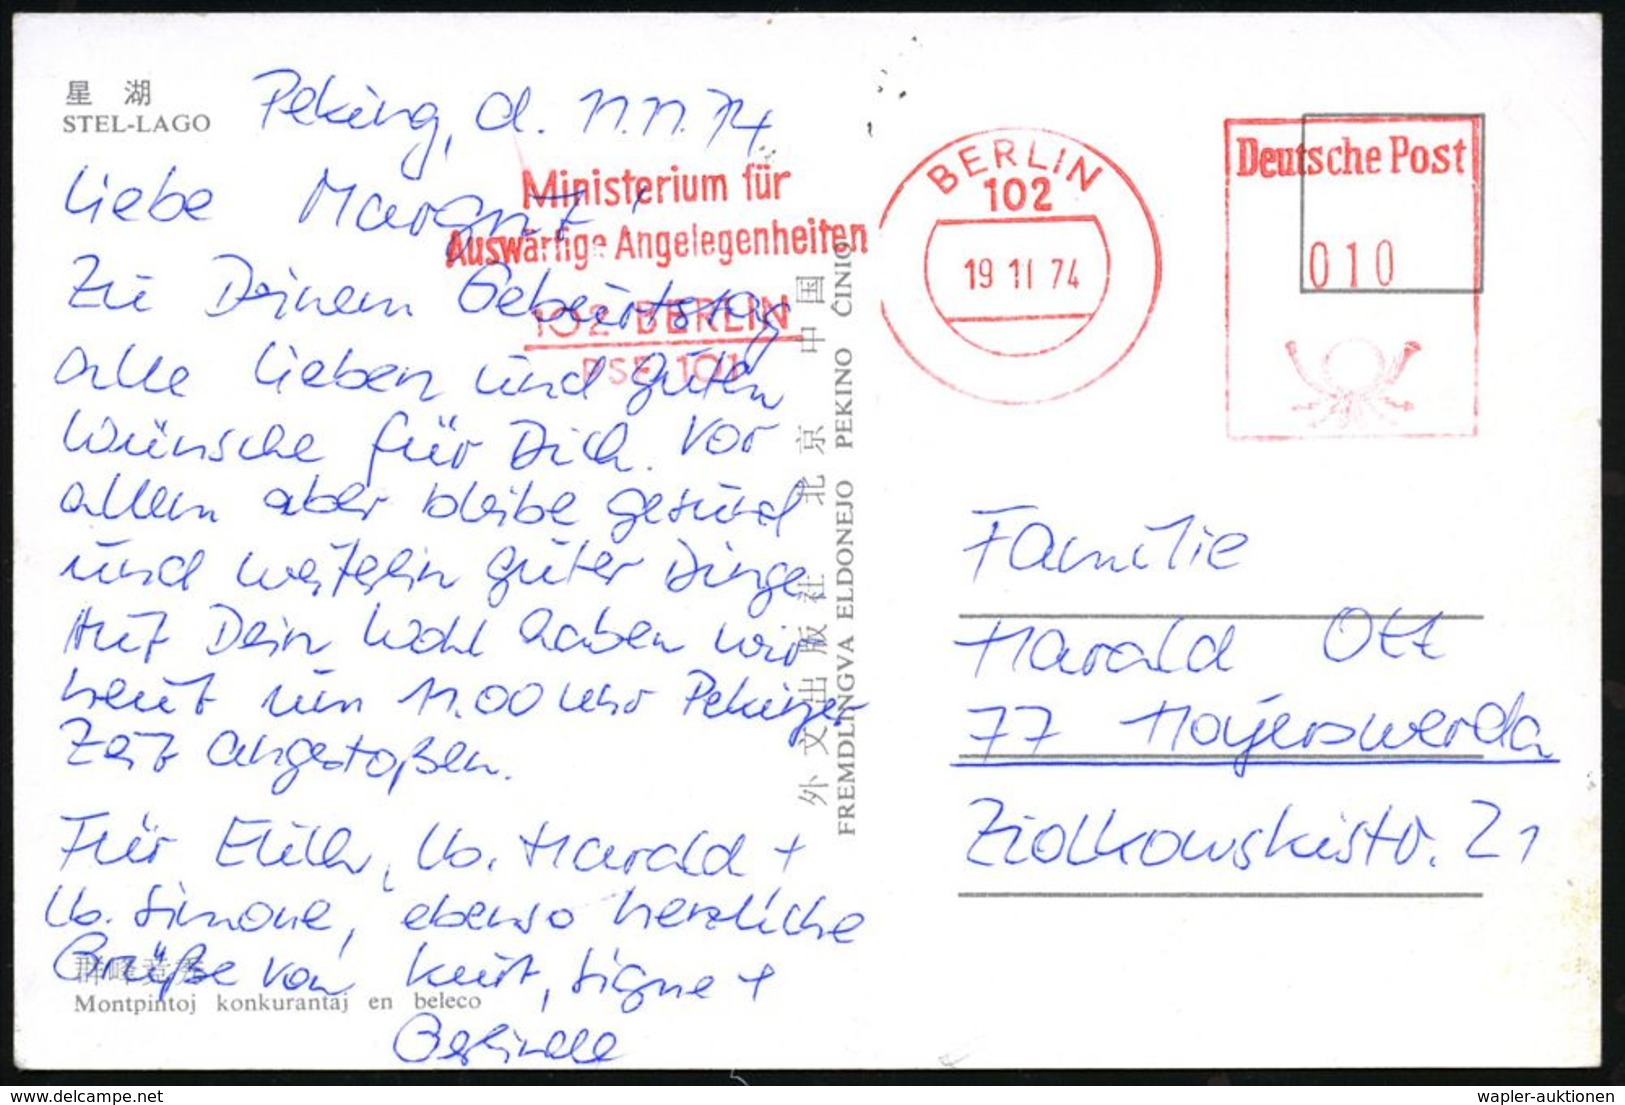 星 湖
STEL-LAGO
Peking, d. 11.11.74
Liebe Margrit!
Zu Deinem Geburtstag
alle lieben und guten
Wünsche für Dich. Vor
allem aber bleibe gesund
und weiterhin guter Dinge
Auf Dein Wohl haben wir
heut um 11.00 Uhr Pekinger
Zeit angestoßen.
Für lb. Harald +
lb. Simone, ebenso herzliche
Grüße von Kurt, Signe +
群峰竞秀
Montpintoj konkurantaj en beleco
Ministerium für
Auswärtige Angelegenheiten
102 BERLIN
PSF 101
外文出版社 北京 中国
FREMDLINGVA ELDONEJO PEKINO ĈINIO
BERLIN
102
19 11 74
Deutsche Post
010
Familie
Harald Ott
77 Hoyerswerda
Ziolkowskistr. 21
wapler-auktionen